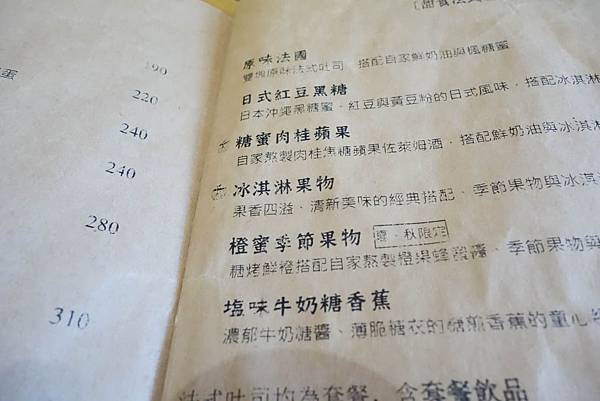 蛋
190
220
240
240
280
310
[甜食法式
原味法國
雙塊原味法式吐司、搭配自家鮮奶油與楓糖蜜
日式紅豆黑糖
日本沖繩黑糖蜜、紅豆與黃豆粉的日式風味，搭配冰淇淋
糖蜜肉桂蘋果
自家熬製肉桂焦糖蘋果佐萊姆酒，搭配鮮奶油與冰淇淋
冰淇淋果物
果香四溢、清新美味的經典搭配、季節果物與冰淇
橙蜜季節果物 秋限定
糖烤鮮橙搭配自家熬製橙果蜂蜜醬、季節果物與
塩味牛奶糖香蕉
濃郁牛奶糖醬、薄脆糖衣的糖煎香蕉的童心
法式吐司均為套餐，含套餐飲品